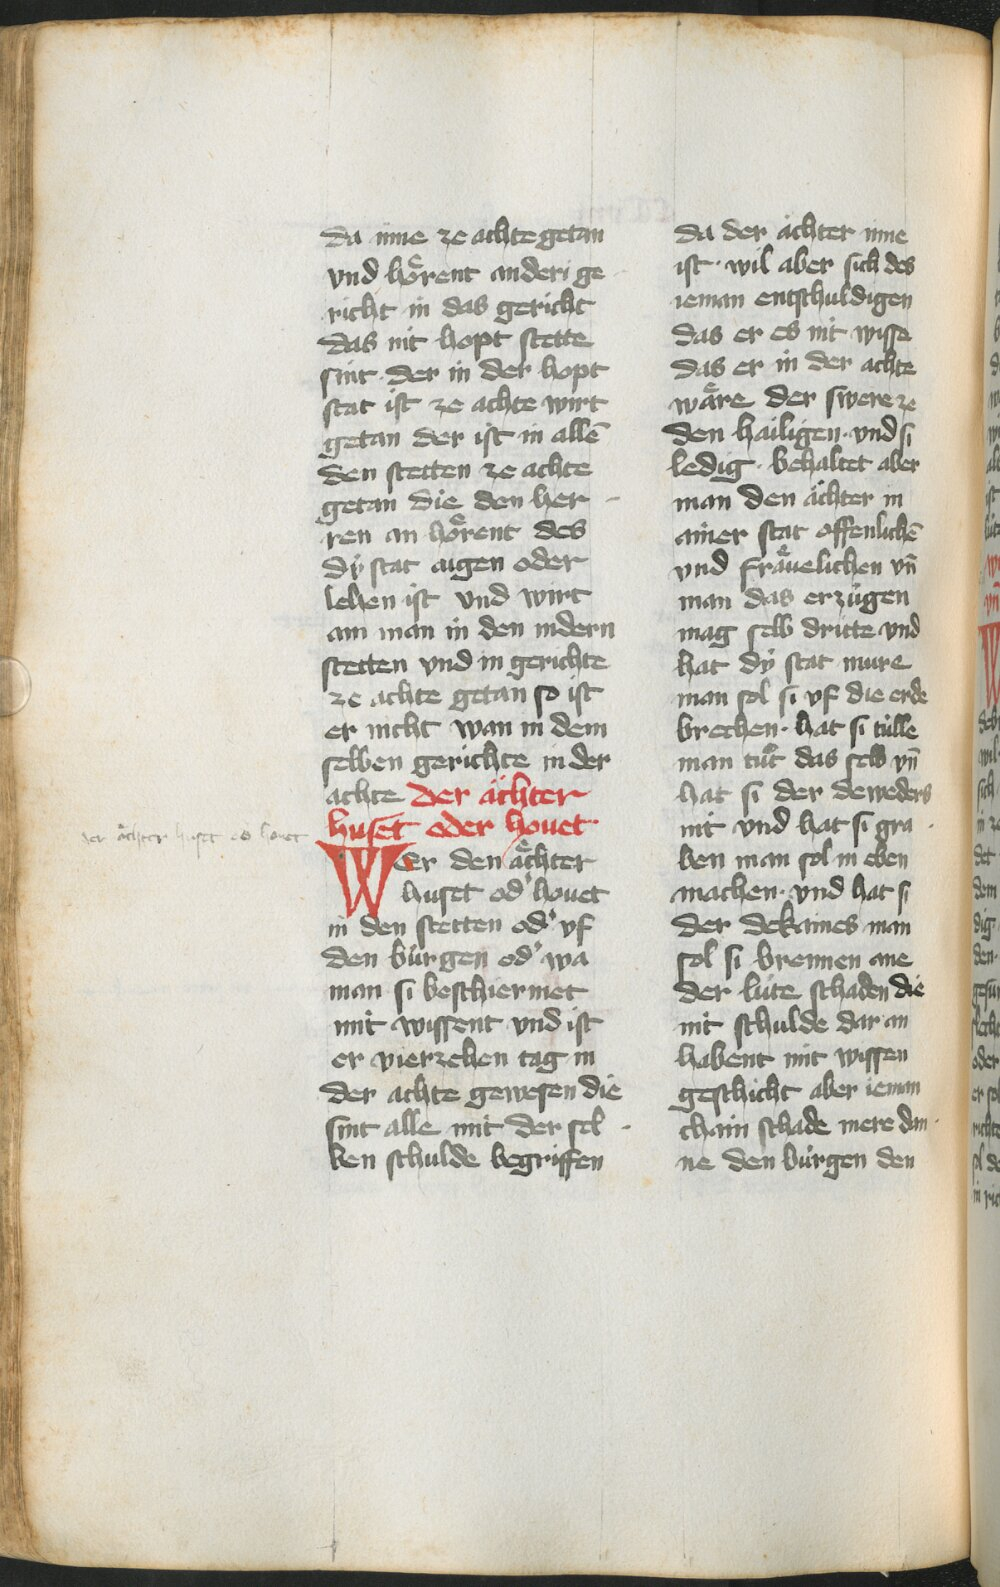 da inne ze achte getan
vnd hoͤrent anderi ge
richt in das gericht
das nit hopt stette
sint · der in der hopt
stat ist ze achte wirt
getan der ist in allē
den stetten ze achte
getan die den her -
ren an hoͤrent des
dÿ stat aigen oder
lehen ist vnd wirt
ain man in den indern
stetten vnd in gerichte
ze achte getan so ist
er nicht wan in dem
selben gerichte in der
achte Der ächter
huset oder houet
der aͤchter huset od houet
WEr den aͤchter
huset od' houet
in den stetten od' vf
den bürgen od' wa
man si beschiermet
mit wissent vnd ist
er vierzehen tag in
der achte gewesen die
sint alle mit der sel -
ben schulde begriffen
da der ächter inne
ist · wil aber sich des
ieman entschuldigen
das er es nit wisse
das er in der achte
waͤre der swere ze
den hailigen · vnd si
ledig · behaltet aber
man den ächter in
ainer stat offenlichē
vnd fraͤuelichen vn̄
man das erzügen
mag selb dritte vnd
hat dÿ stat mure
man sol si vf die erde
brechen · hat si tülle
man tuͦt das selb vn̄
hat si der deweders
nit vnd hat si gra -
ben man sol in eben
machen · vnd hat si
der dekaines man
sol si brennen ane
der lüte schaden die
nit schulde dar an
habent mit wissen
geschicht aber ieman
chain schade mere dan -
ne den bürgen den